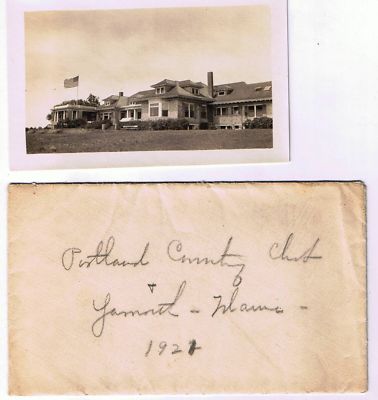 Portland Country Club
+
Yarmouth - Maine -
1921